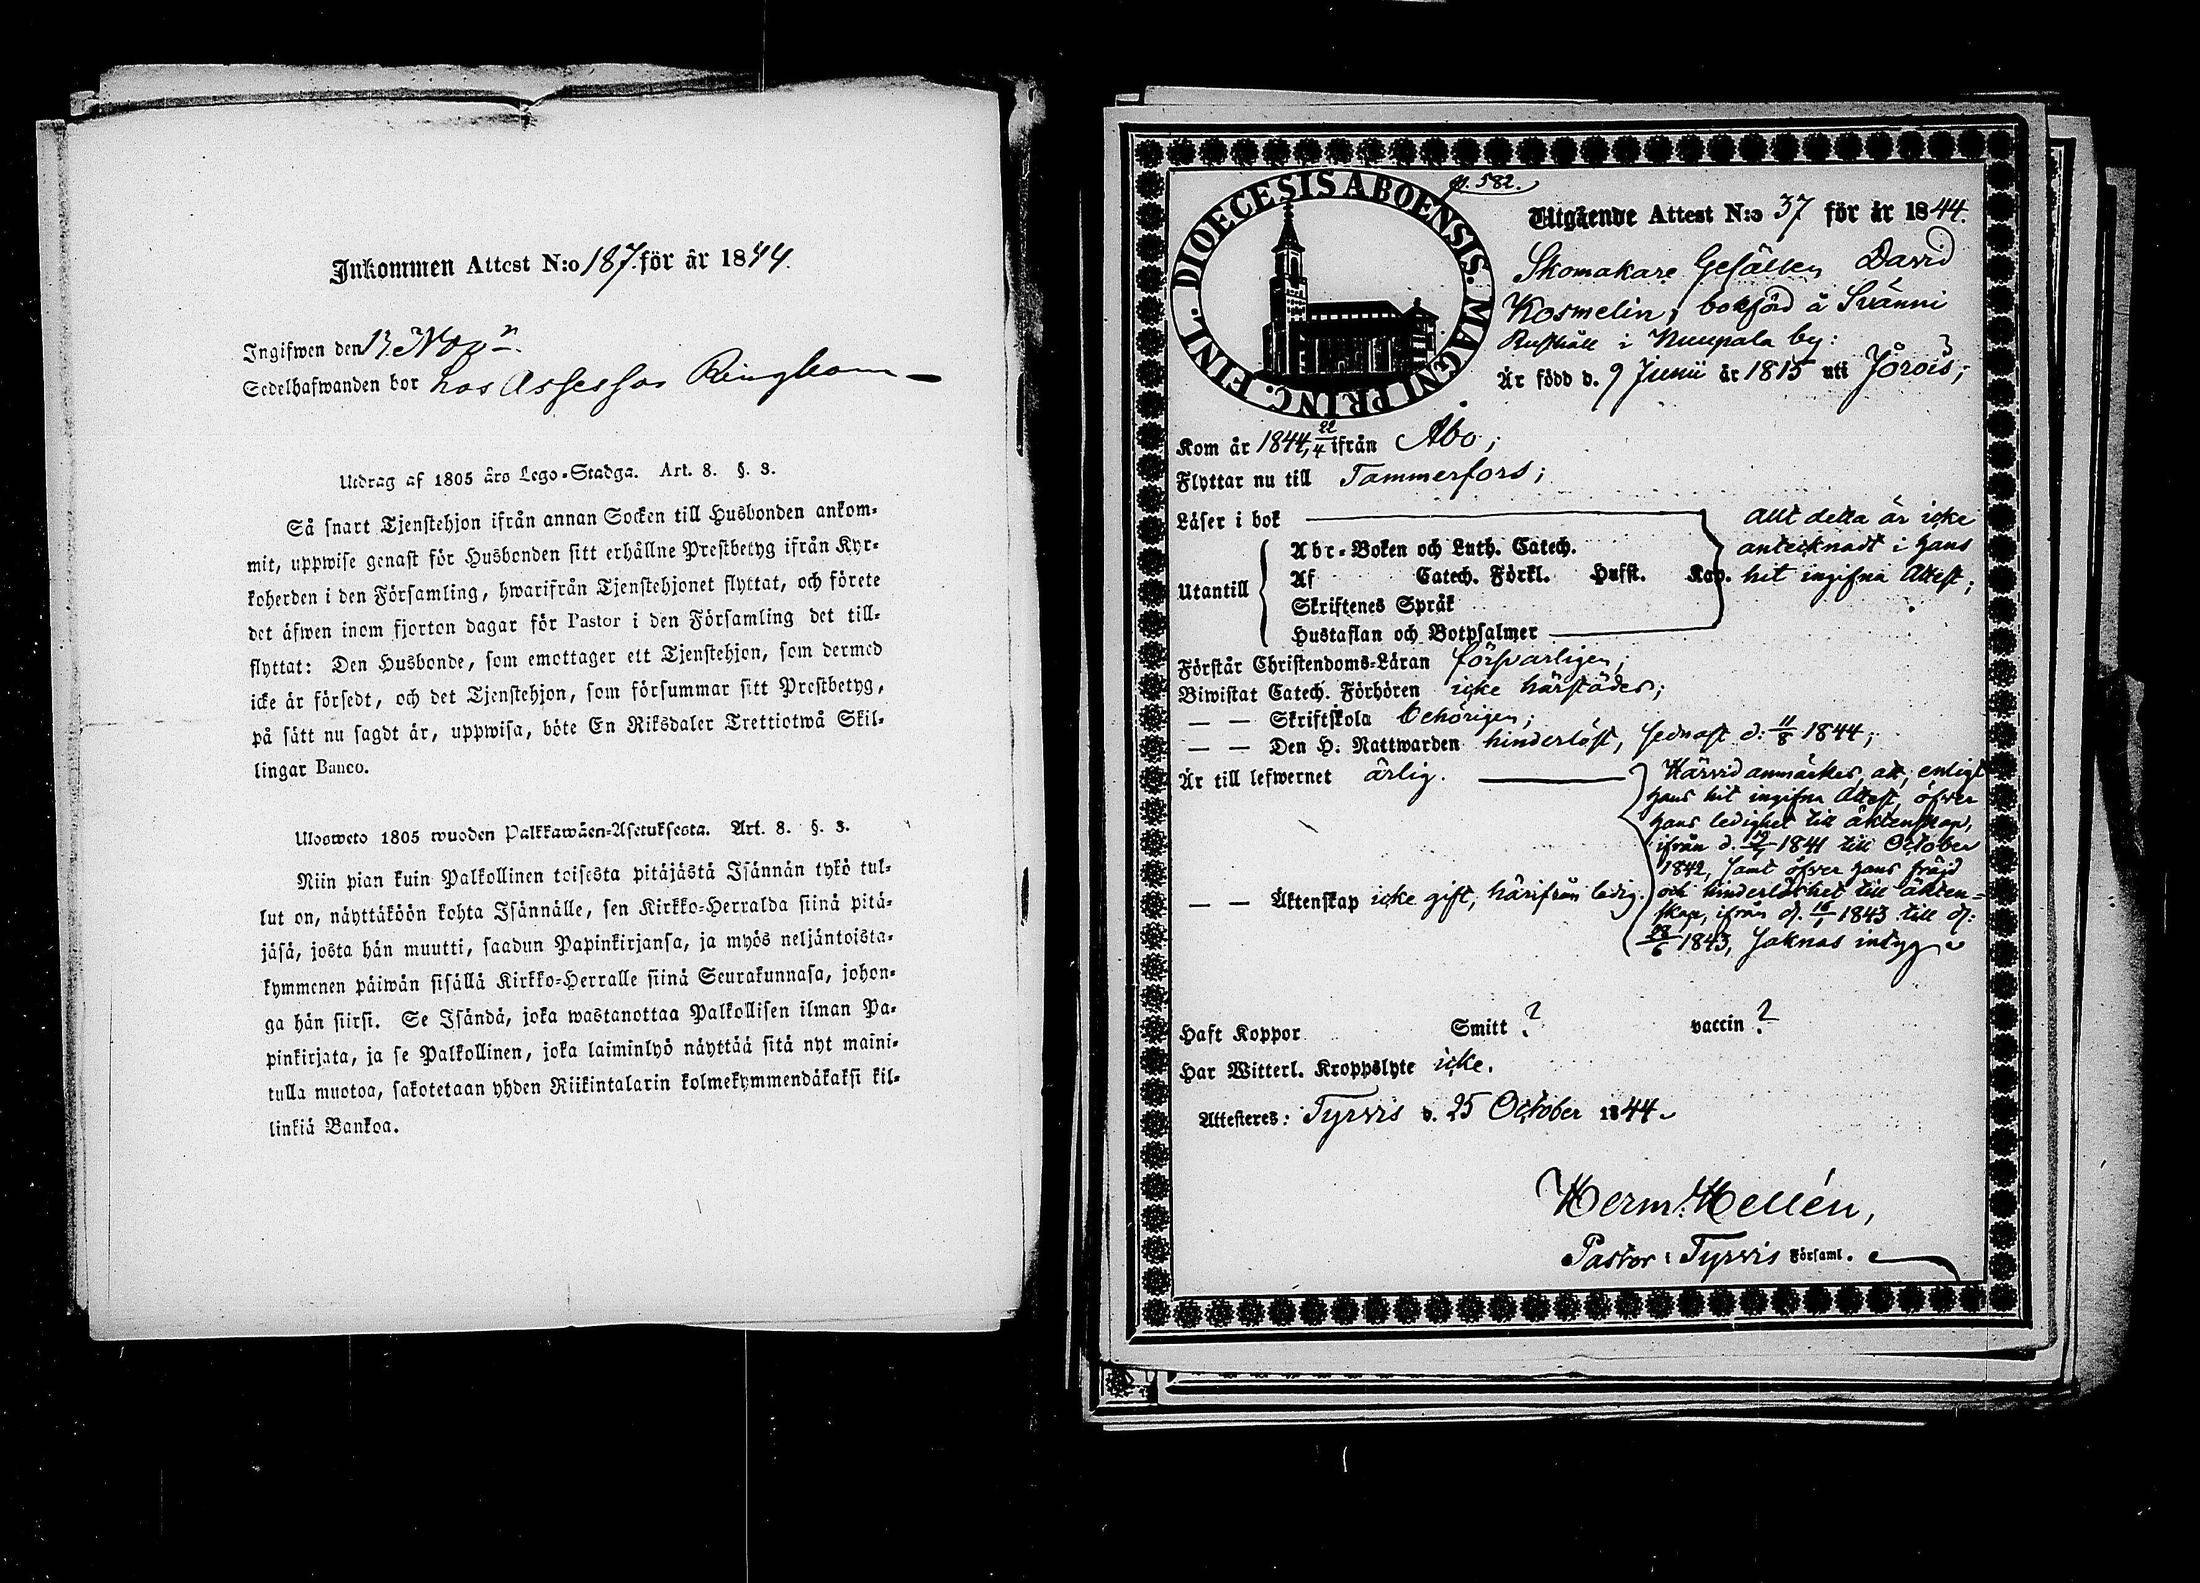 Inkommen Attest N:o 187. för år 1844.
Ingifwen den 13 Nov:
Sedelhafwanden bor hos Assessor Ringbom
Utdrag af 1805 års Lego-Stadga. Art. 8. §. 3.
Så snart Tjenstehjon ifrån annan Socken till Husbonden ankom-
mit, uppwise genast för Husbonden sitt erhållne Prestbetyg ifrån Kyr-
koherden i den Församling, hwarifrån Tjenstehjonet flyttat, och förete
det äfwen inom fjorton dagar för Pastor i den Församling det till-
flyttat: Den Husbonde, som emottager ett Tjenstehjon, som dermed
icke är försedt, och det Tjenstehjon, som försummar sitt Prestbetyg,
på sätt nu sagdt är, uppwisa, böte En Riksdaler Trettiotwå Skil-
lingar Banco.
Ulosweto 1805 wuoden Palkkawäen-Asetuksesta. Art. 8. §. 3.
Niin pian kuin Palkollinen toisesta pitäjästä Isännän tykö tul-
lut on, näyttäköön kohta Isännälle, sen Kirkko-Herralda siinä pitä-
jäsä, josta hän muutti, saadun Papinkirjansa, ja myös neljäntoista-
kymmenen päiwän sisällä Kirkko-Herralle siinä Seurakunnasa, johon-
ga hän siirsi. Se Isändä, joka wastanottaa Palkollisen ilman Pa-
pinkirjata, ja se Palkollinen, joka laiminlyö näyttää sitä nyt maini-
tulla muotoa, sakotetaan yhden Riikintalarin kolmekymmendäkaksi kil-
linkiä Bankoa.
p. 582.
DIOECESIS ABOENSIS. MAGNI PRINC. FINL.
Utgående Attest N:o 37 för år 1844.
Skomakare Gesällen David
Kosmelin, bokförd å Svänni
Rusthåll i Nuupala by:
Är född d. 9 Junii år 1815 uti Jorois;
Kom år 1844, 22/4 ifrån Åbo;
Flyttar nu till Tammerfors;
Läser i bok
Utantill
Abc-Boken och Luth. Catech.
Af Catech. Förkl. Hufst. Kap.
Skriftenes Språk
Hustaflan och Botpsalmer
Allt detta är icke
antecknadt i hans
hit ingifna Attest;
Förstår Christendoms-Läran försvarligen;
Biwistat Catech. Förhören icke härstädes;
— — Skriftskola behörigen;
— — Den H. Nattwarden hinderlöst, sednast d. 11/8 1844;
Är till lefwernet ärlig.
— — Äktenskap icke gift, härifrån ledig.
Härvid anmärkes, att, enligt
hans hit ingifna Attest, öfver
hans ledighet till äktenskap,
ifrån d. 1841 till October
1842, samt öfver hans fräjd
och hinderlöshet till äkten-
skap, ifrån d. 16/1 1843 till d:
28/6 1843, saknas intyg
Haft Koppor Smitt ? vaccin ?
Har Witterl. Kroppslyte icke.
Attesteres: Tyrvis d. 25 October 1844.
Herm: Hellén,
Pastor i Tyrvis Församl.